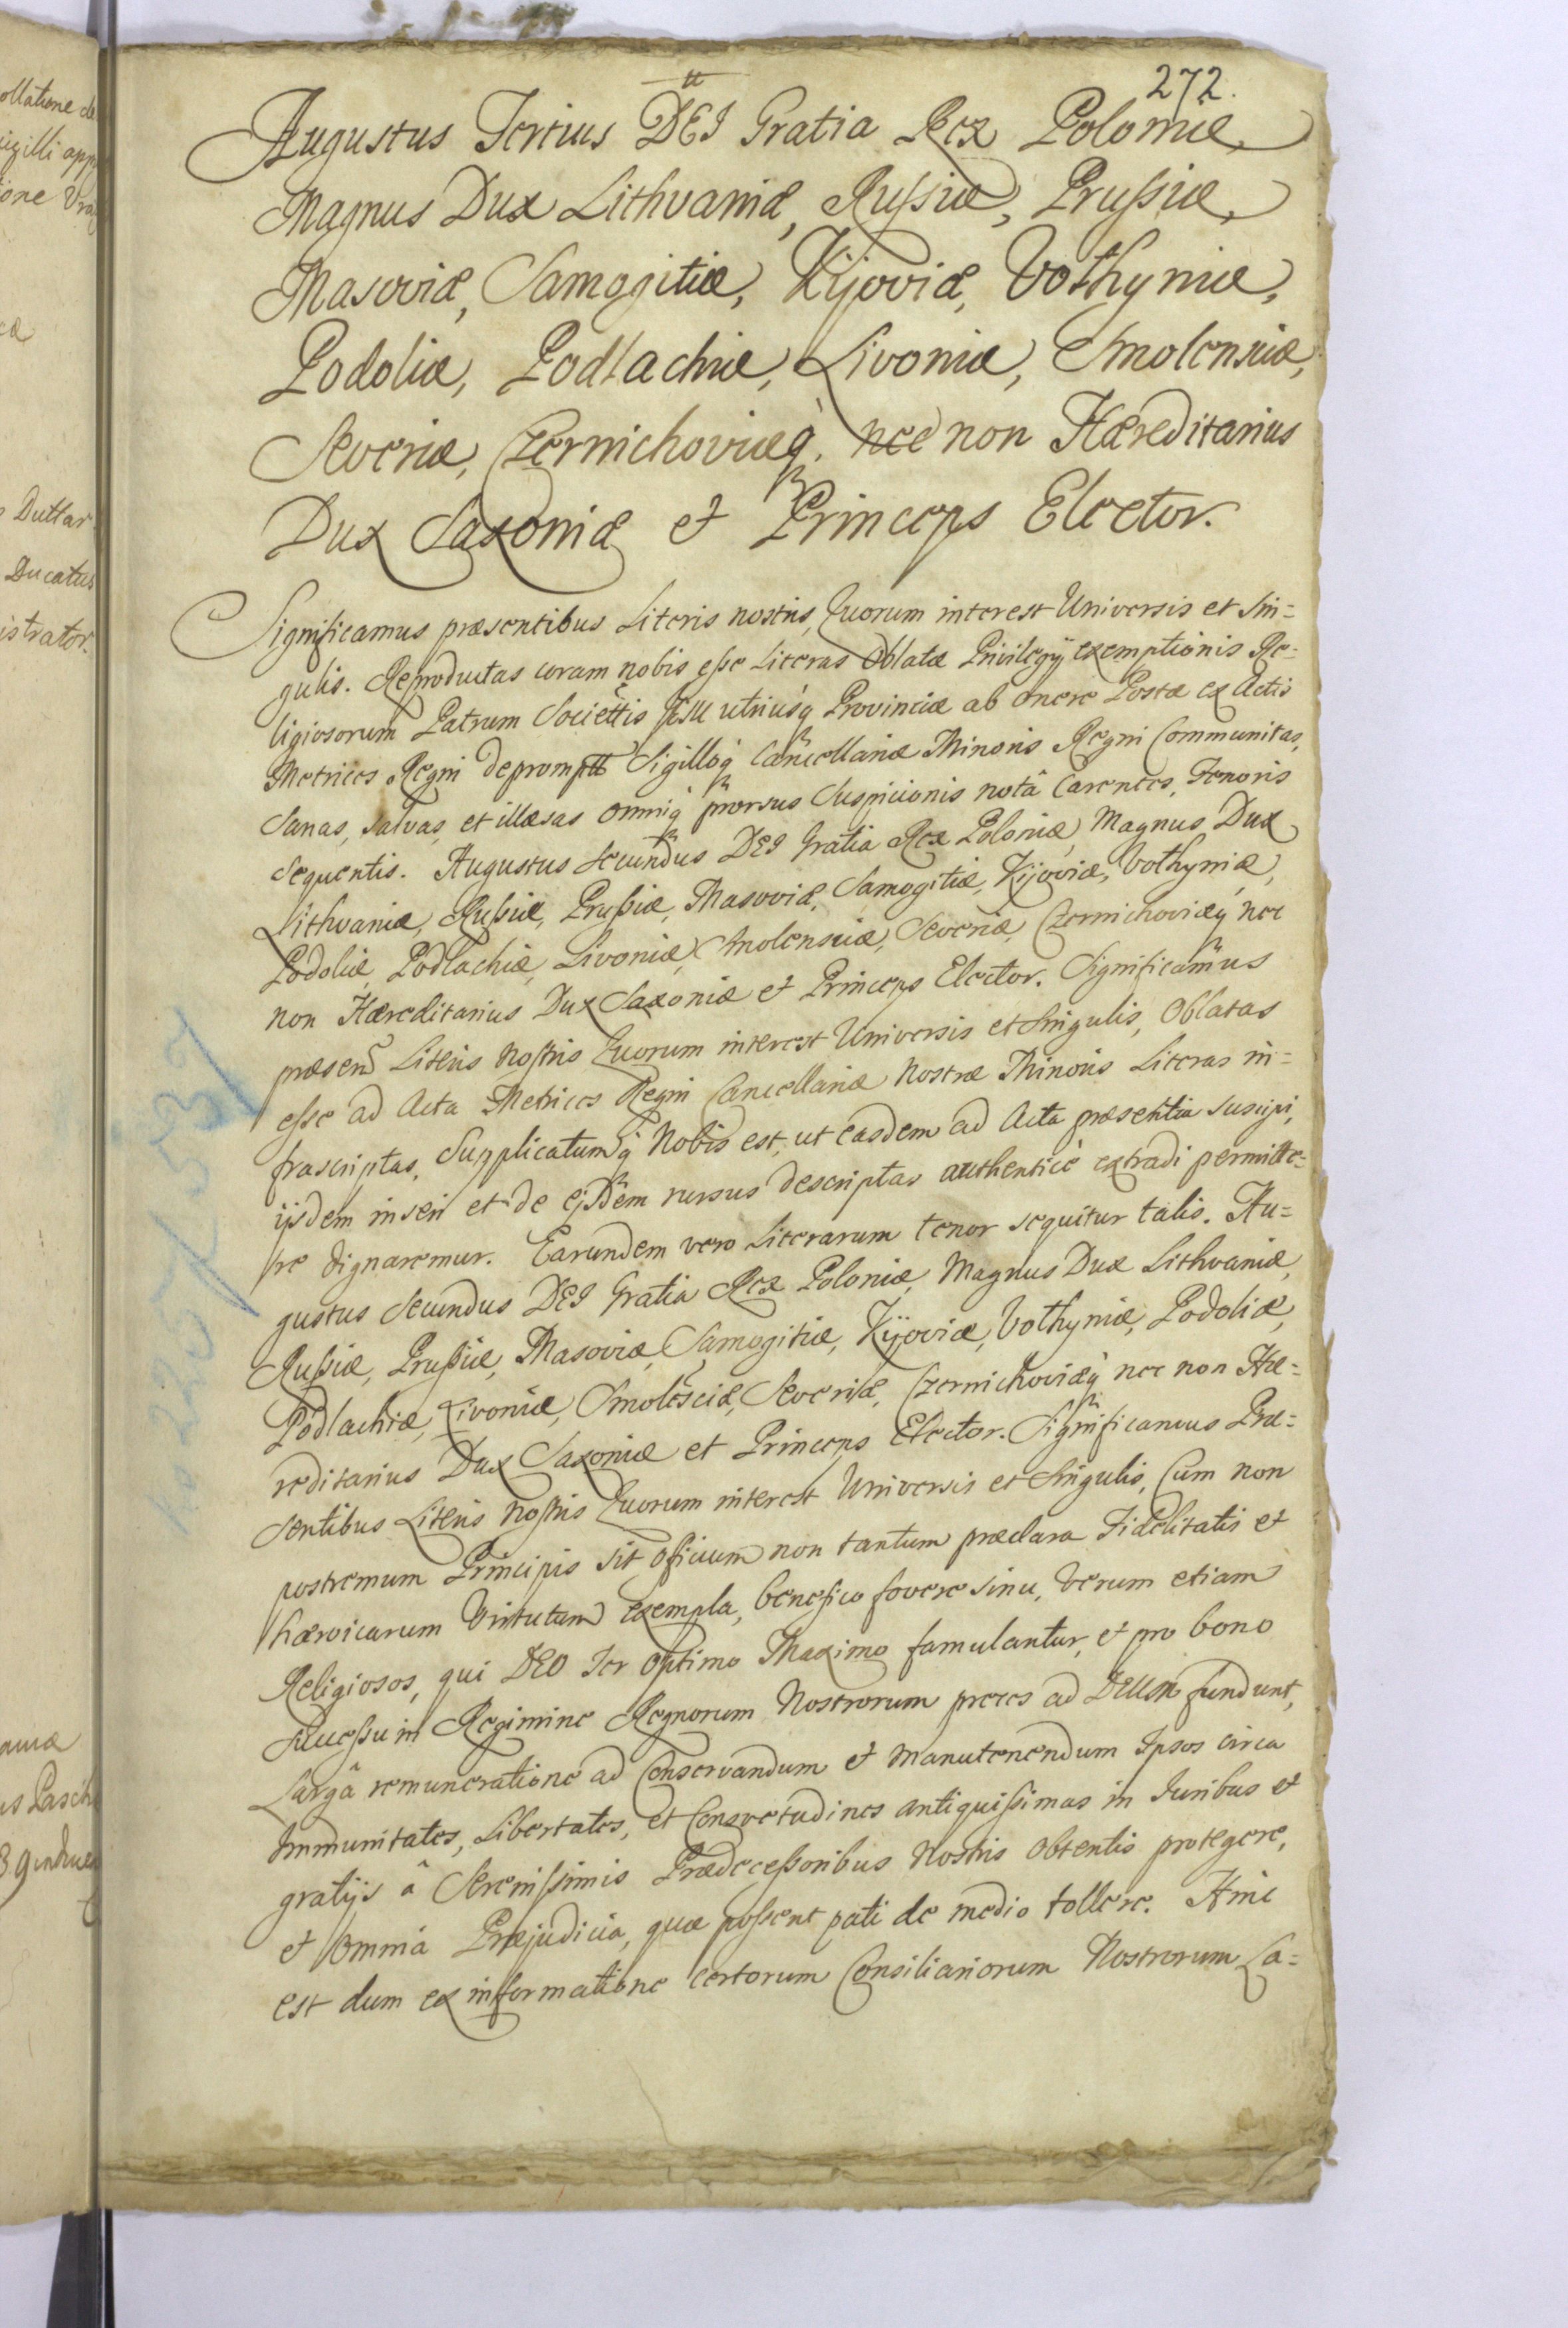 272.
Augustus Tertius DEI Gratia Rex Poloniæ,
Magnus Dux Lithvaniæ, Rußiæ, Prußiæ,
Masoviæ, Samogitiæ, Kijoviæ, Vołhyniæ,
Podoliæ, Podlachiæ, Livoniæ, Smolensciæ,
Severiæ, Czernichoviæq́, nec non Hæreditarius
Dux Saxoniæ et Princeps Elector.
Significamus præsentibus Literis nostris, Quorum interest Universis et Sin=
gulis. Reproductas coram nobis eße Literas Oblatæ Privilegij exemptionis Re=
ligiosorum Patrum Societtis JESU utriusq́ Provinciæ ab onere Postæ ex Actis
Metrices Regni depromptt Sigilloq́ Cancellariæ Minoris Regni Communitas,
Sanas, salvas, et illæsas omniq́ prorsus Suspicionis notâ Carentes, Tenoris
sequentis. Augustus Secundus DEI Gratia Rex Poloniæ, Magnus Dux
Lithvaniæ, Rußiæ, Prußiæ, Masoviæ, Samogitiæ, Kijoviæ, Vołhyniæ,
Podoliæ, Podlachiæ, Livoniæ, Smolensciæ, Severiæ, Czernichoviæq́ nec
non Hæreditarius Dux Saxoniæ et Princeps Elector. Significamus
præsend Literis Nostris Quorum interest Universis et Singulis, Oblatas
eße ad Acta Metrices Regni Cancellariæ Nostræ Minoris Literas in=
frascriptas, Supplicatumq́ Nobis est, ut easdem ad Acta præsentia suscipi,
ijsdem inseri et de ejsdem rursus descriptas authenticè extradi permitte=
re dignaremur. Earundem vero Literarum tenor sequitur talis. Au=
gustus Secundus DEI Gratia Rex Poloniæ, Magnus Dux Lithvaniæ,
Rußiæ, Prußiæ, Masoviæ, Samogitiæ, Kijoviæ, Vołhyniæ, Podoliæ,
Podlachiæ, Livoniæ, Smolesciæ, Severiæ, Czernichoviæq́ nec non Hæ=
reditarius Dux Saxoniæ et Princeps Elector. Significamus Præ=
sentibus Literis Nostris Quorum interest Universis et Singulis, Cum non
postremum Principis sit Oficium non tantum præclara Fidelitatis et
hæroicarum Virtutum exempla, benefico fovere sinu, Verum etiam
Religiosos, qui DEO Ter Optimo Maximo famulantur, et pro bono
succeßu in Regimine Regnorum Nostrorum preces ad DEUM fundunt,
Largâ remuneratione ad Conservandum et Manutenendum Ipsos circa
Immunitates, Libertates, et Consvetudines antiquißimas in Juribus et
gratijs â Serenißimis Prædeceßoribus Nostris Obtentis protegere,
et Omnia Præjudicia, quæ poßent pati de medio tollere. Hinc
est dum ex informatione certorum Consiliariorum Nostrorum La=